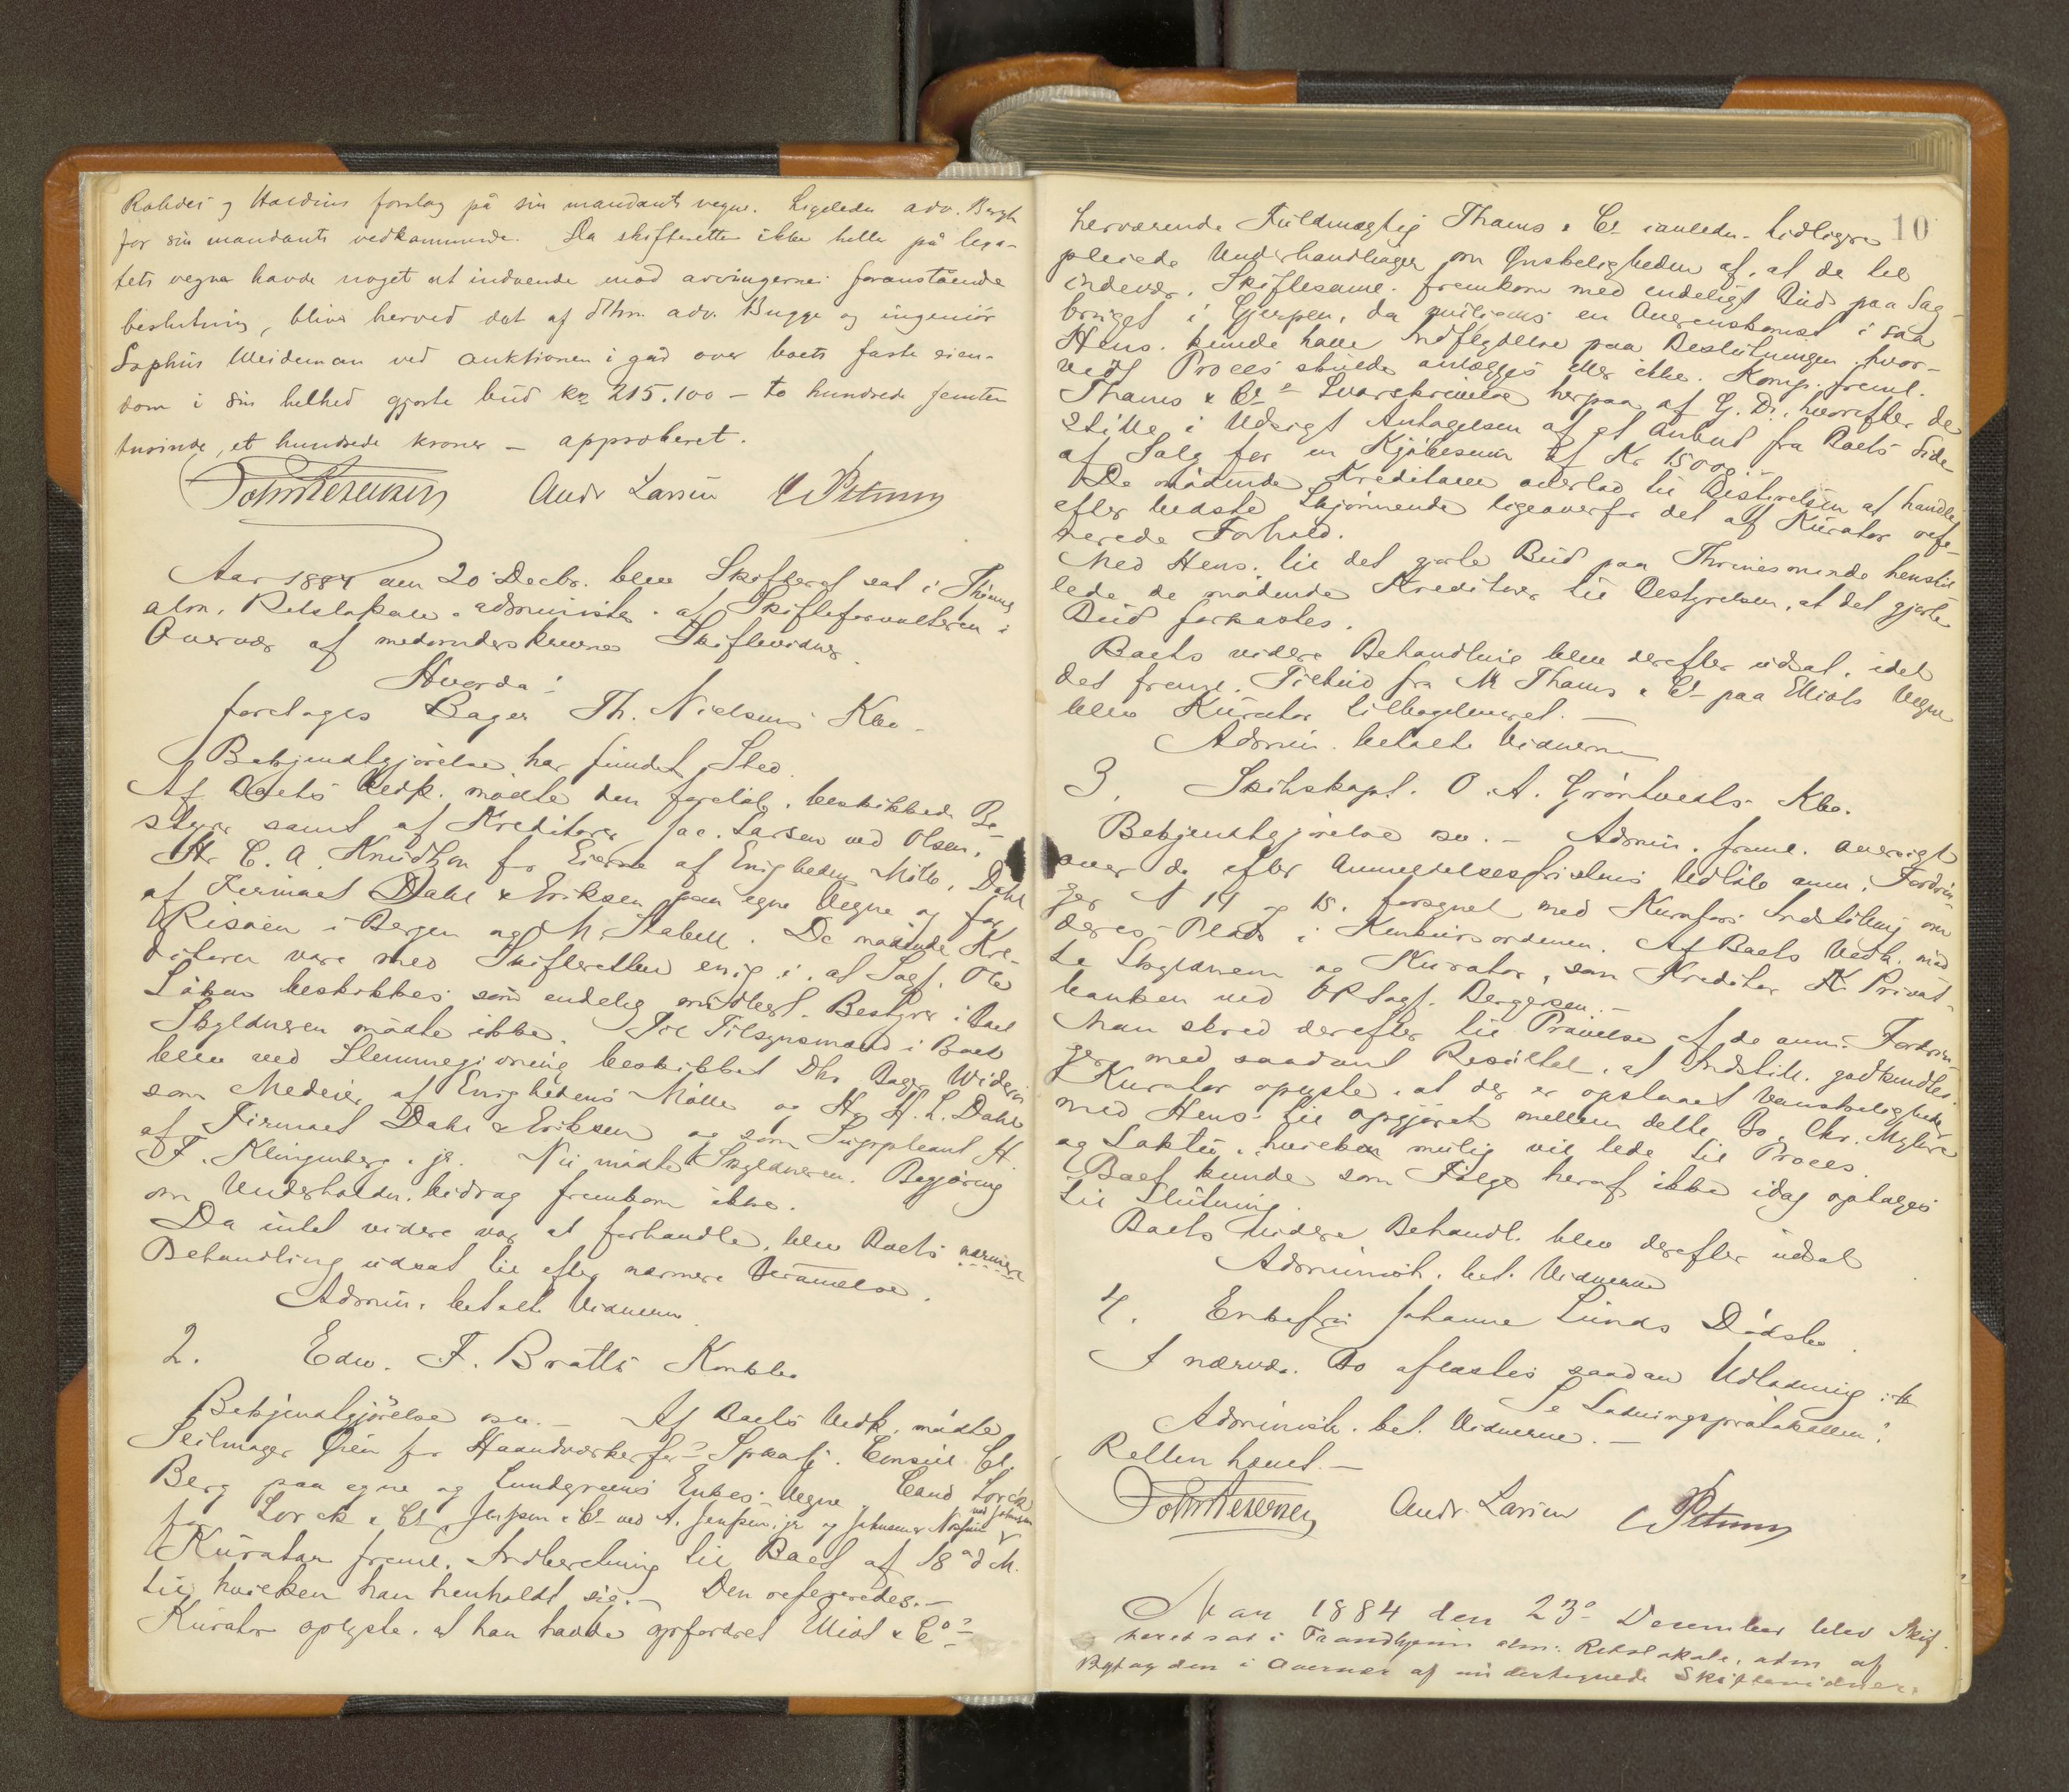 Rohdes og Hardins forslag på sin mandants vegne. Ligeledes adv. Bergh
for sin mandants vedkommende. Da skifteretten ikke heller på lega-
tets vegne havde noget at indvende mod arvingernes foranstående
beslutning, blives herved det af dhrr. adv. Bugge og ingeniör
Sophus Weideman ved auktionen i går over boets faste eien-
dom i sin helhed gjorte bud kr 215.100 - to hundrede femten
tusinde, et hundrede kroner - approberet.
Andr Larsen
Aar 1884 den 20 Decbr. blev Skifteret sat i Thjems
alm. Retslokale administr. af Skifteforvalteren i
Overvær af medunderskrevne Skiftevidner.
Hvorda:
foretoges Bager Th. Nielsens Kbo
Bekjendtgjörelse har fundet Sted.
Af Boets Vedk. mödte den foreløb. beskikkede Be-
styrer samt af Kreditorer Jac. Larsen ved Olsen,
Hr C. A. Knudtzon for Eierne af Enigheden Mölle, Dahl
af Firmaet Dahl & Eriksen paa egne Vegne og for
Risöen i Bergen og M Stabell. De mödende Kre-
ditorer vare med Skifteretten enig i, at Sagf. Ole
Löken beskikkes som endelig Bestyrer i Boet
Skyldneren mödte ikke. Til Tilsynsmænd i Boet
blev ved Stemmegivning beskikket Dhr Bager Wideröe
som Medeier af Enighedens Mölle og Hr H. L. Dahl
af Firmaet Dahl & Eriksen og som Suppleant H.
F. Klingenberg jr. Nu mödte Skyldneren. Begjæring
om Underholdn. bidrag fremkom ikke.
Da intet videre var at forhandle, blev Boets nærmere
Behandling udsat til efter nærmere Berammelse.
Admin. betalte Vidnerne
2. Edw. F. Bratts Konkbo
Bekjendtgjörelse osv. - Af Boets Vedk. mödte
Seilmager Öien for Haandværkerfor. Spkasse. Consul Cl.
Berg paa egne og Lundgreens Enkes Vegne, Cand Lorck
for Lorck & Co, Jenssen & Co ved A. Jenssen jr og Johnsen
Kurator freml. Indberetning til Boet af 18 d M.
til hvilken han henholdt sig. - Den refereredes. -
Kurator oplyste, at han havde opfordret Elliot & Co
10
herværende Fuldmægtig Thams & Co i anledn. tidligere
pleiede Underhandlinger om Ønskeligheden af, at de til
indevær. Skiftesaml. fremkom med endeligt Bud paa Sag-
bruget i Gjerpen, da muligens en Overenskomst i saa
Hens. kunde have Indflydelse paa Beslutningen, hvor-
vidt Proces skulde anlægges eller ikke. Komp. freml.
Thams & Co Svarskrivelse herpaa af G. D., hvorefter de
stille i Udsigt Antagelsen af et Anbud fra Boets Side
af Salg for en Kjöbesum af Kr 15000.
De mödende Kreditorer overlod til Bestyrelsen at handle
efter bedste Skjönnende ligeoverfor det af Kurator refe-
rerede Forhold.
Med Hens. til det gjorte Bud paa Thrinesminde henstil-
lede de mödende Kreditorer til Bestyrelsen, at det gjorte
Bud forkastes.
Boets videre Behandling blev derefter udsat, idet
det freml. Tilbud fra M Thams & Co paa Elliots Vegne
blev Kurator tilbageleveret. -
Admin. betalte Vidnerne
3. Skibskapt. O. A. Gröntvedts Kbo.
Bekjendtgjörelse osv. - Admin. freml. Oversigt
over de efter Anmeldelsesfristens Udlöb anm. Fordrin-
ger N 14 og 15, forsynet med Kurators Indstilling om
deres Plads i Konkursordenen. Af Boets Vedk. möd-
te Skyldneren og Kurator, som Kreditor K. Privat-
banken ved OR Sagf. Bergersen. -
Man skred derefter til Prövelse af de anm. Fordrin-
ger med saadant Resultat, at Indstill. godkendtes.
Kurator oplyste, at der er opstaaet Vanskeligheder
med Hens. til opgjöret mellem dette Bo & Chr. Myhre
og Laktu, hvilken mulig vil lede til Proces.
Boet kunde som Fölge heraf ikke idag optages
til Slutning.
Boets videre Behandl. blev derefter udsat
Administr. bet. Vidnerne
4. Enkefru Johanne Lunds Dödsbo.
I nærvær. Bo afløstes saadan Udlodning :/:
Se Lodningsprotokollen!
Administr. bet. Vidnerne. -
Retten hævet. -
Andr. Larsen
Aar 1884 den 23 December blev Skif-
teret sat i Trondhjem alm. Retslokale, adm af
Bgfogden i Overvær af undertegnede Skiftevidner.